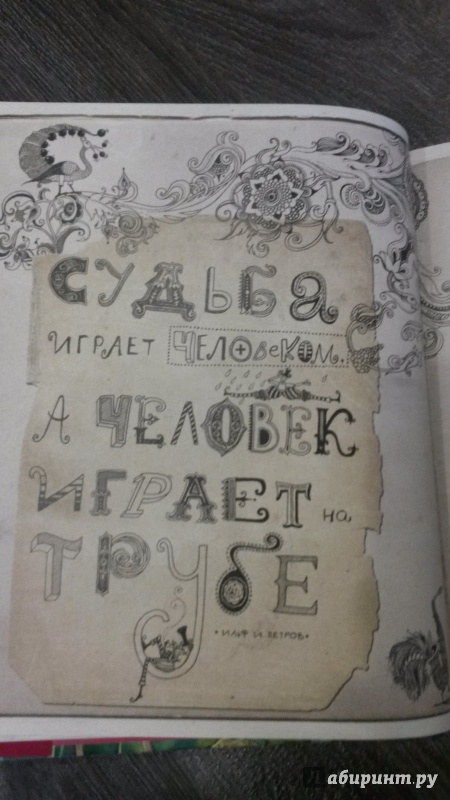 СУДЬБА
ИГРАЕТ ЧЕЛОВеКОМ,
А ЧЕЛОВЕК
ИГРАЕТ на
ТРУБЕ
• ИЛЬФ И ПЕТРОВ •
Лабиринт.ру